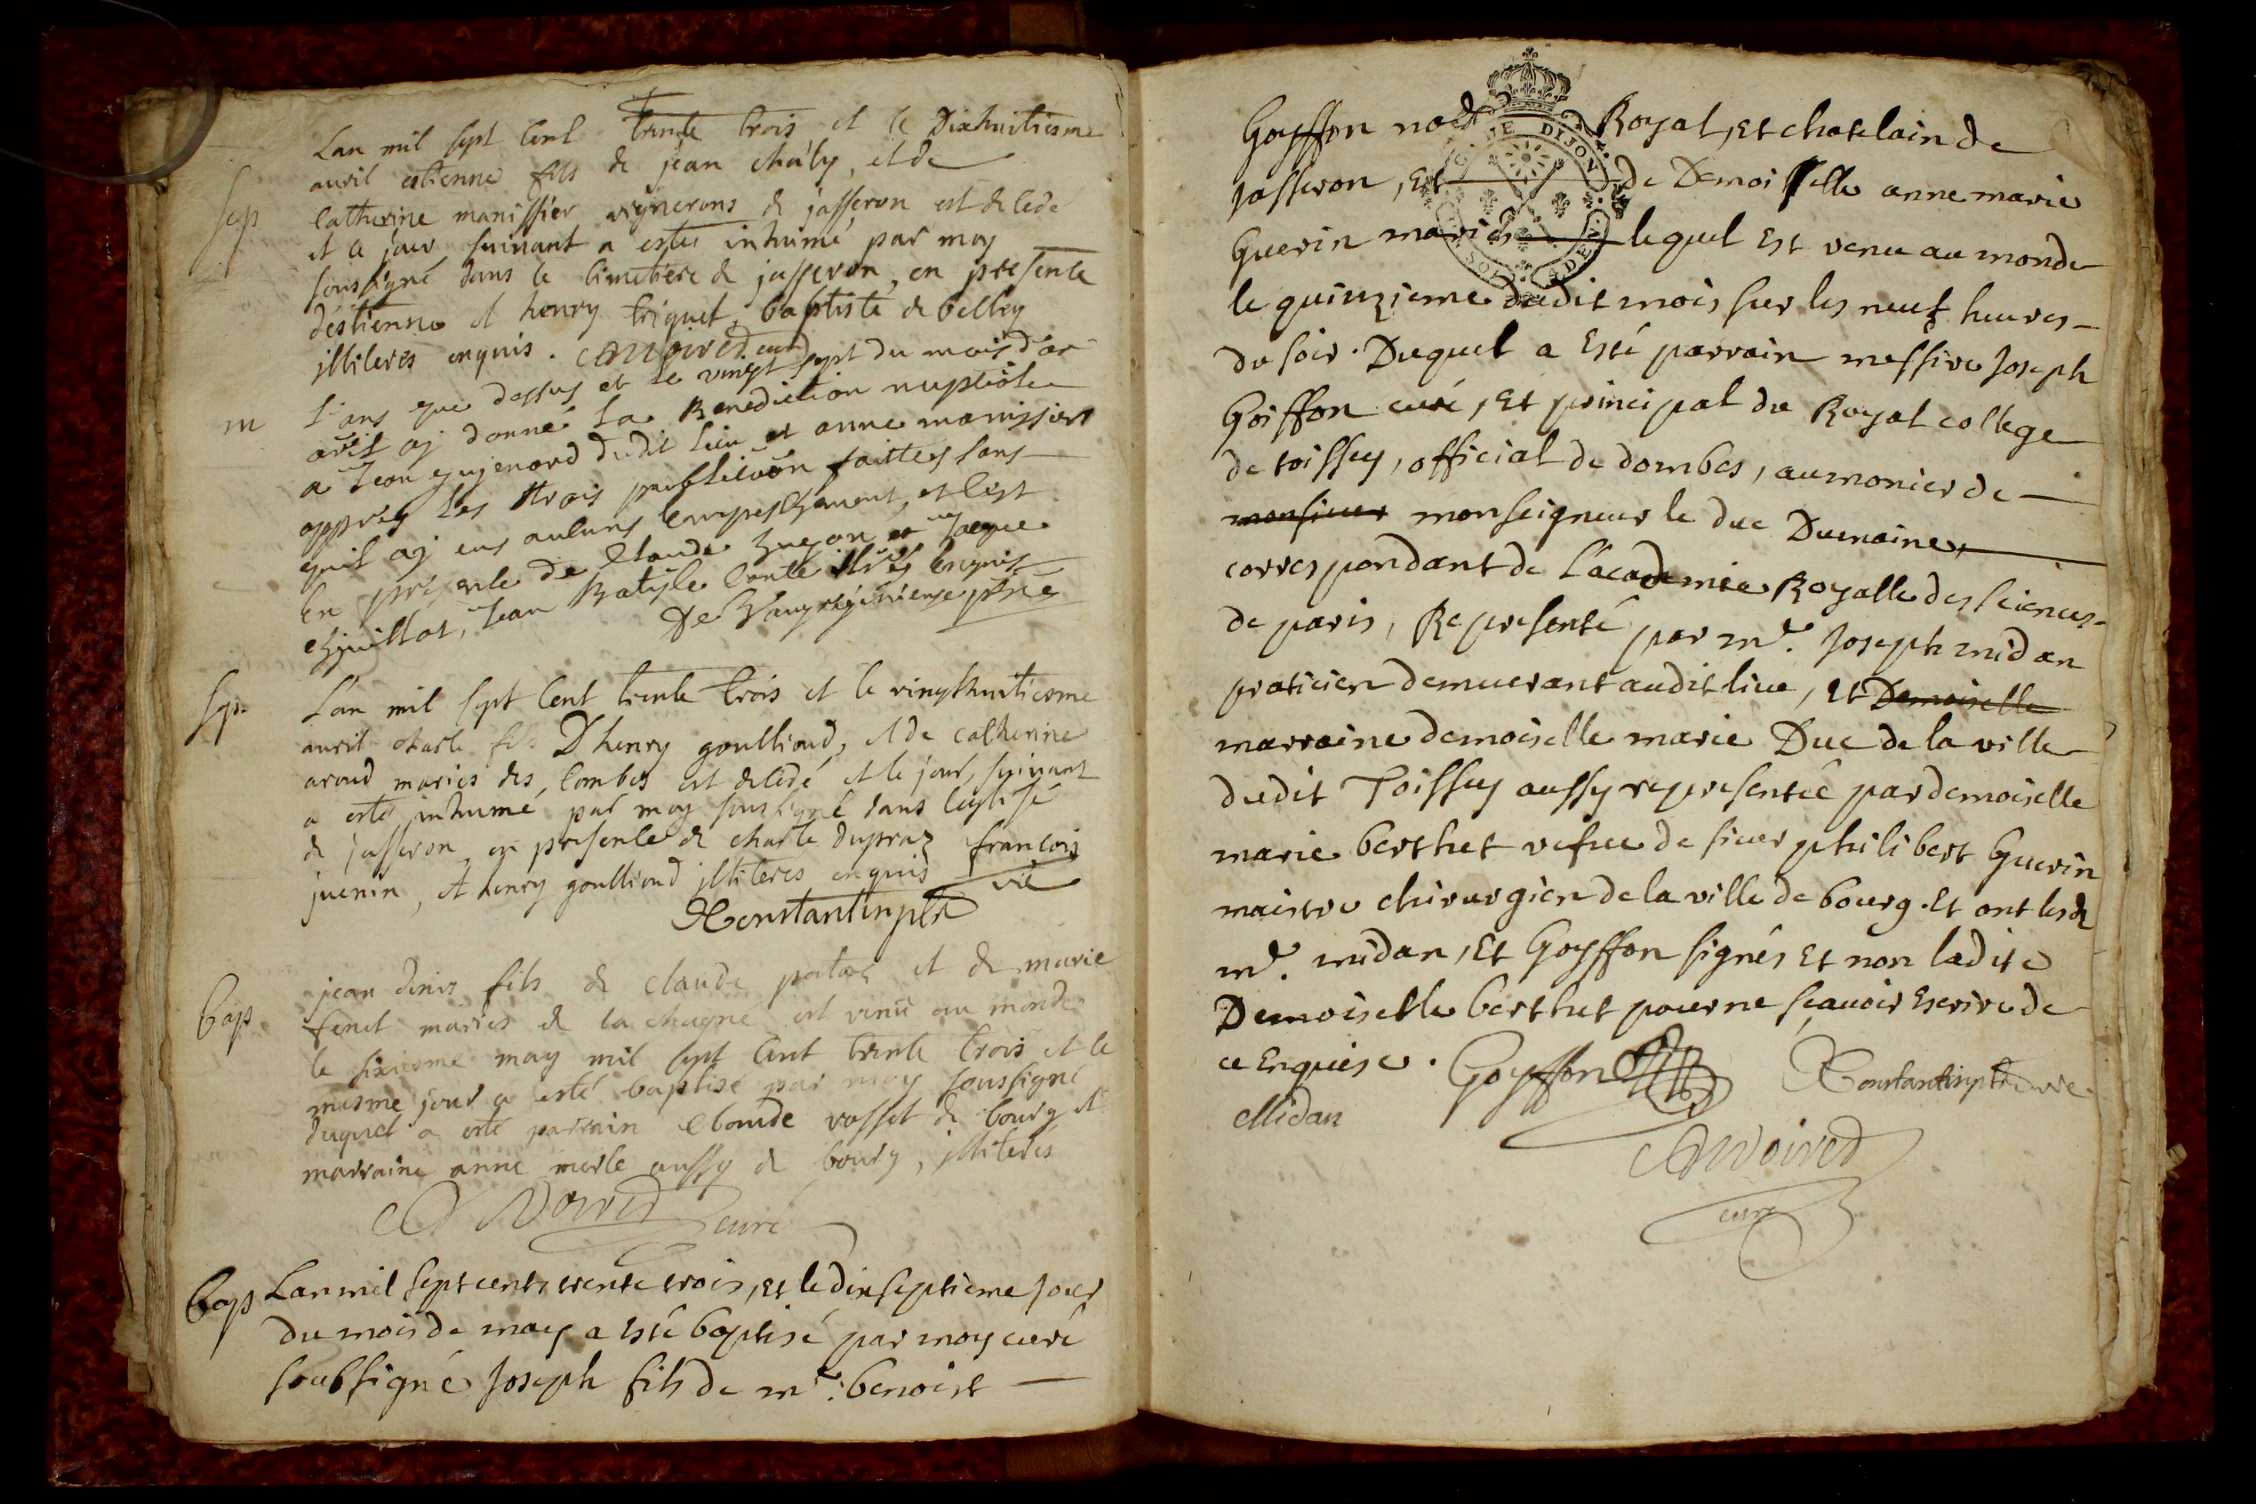 Lan mil sept cent trente trois et le Dixhuitiesme
sep
auril estienne fils de jean chaly, et de
catherine manissier vignerons de jasseron est decede
et le jour suivant a esté inhumé par moy
soussigné dans le cimetiere de jasseron, en presente
d'estienne et henry triquet, baptiste de belley
illiteres enquis. Noired curé
m
L'ans que dessus et le vingt sept du mois d'av
avril aj donné la Benediction nuptiale
a Jean dudit lieu et anne manissier
apprés les trois publicaõn faittes sans
quil aj eus auluns empeschement, et cest
en presente de Claude et Jaque
Guillot, Jean Batiste Conte enquis
ptre
sep.
L'an mil sept cent trente trois et le vingthuitiesme
auril charle fils D'henry goullioud, et de catherine
aroud mariés des combes est decedé et le jour suivant
a esté inhumé par moy soussigné dans l'eglise
de jasseron en presente de charle dupraz françois
juenin, et henry goullioud illiteres enquis
Constantin ptr vic
Bap
jean denis fils de claude et de marie
fenet mariés de la chagne est venu au monde
le sixiesme may mil sept cent trente trois et le
mesme jour a esté baptisé par moy soussigné
duquel a esté parrain claude vasset de bourg et
marraine anne merle aussy de bourg, illiteres
Noired curé
Bap
Lan mil sept cents trente trois, et le dix septieme jour
du mois de may a esté baptisé par moy curé
soubsigné joseph fils de mr. benoist
Goyffon not Royal, et chatelain de
Jasseron, et de Demoiselle anne marie
Guerin mariés lequel est venu au monde
le quinzieme dudit mois sur les neuf heures
du soir. Duquel a esté parrain messire Joseph
Goiffon curé, et principal du Royal college
de toissey, official de dombes, aumonier de
monsieur monseigneur le duc Dumaine,
correspondant de l'academie Royalle des siences
de paris, Representé par mr. Joseph midan
praticien demeurant audit lieu, et Demoiselle
marraine demoiselle marie Duc de la ville
dudit Toissey aussy representée par demoiselle
marie berthet vefue de sieur philibert Guerin
maistre chirurgien de la ville de bourg. et ont lesd
mr. midan, et Goyffon signés et non ladite
Demoiselle berthet pour ne sçauoir escrire de
ce enquise. Goyffon Constantin ptre vic
Midan
Noired
curé